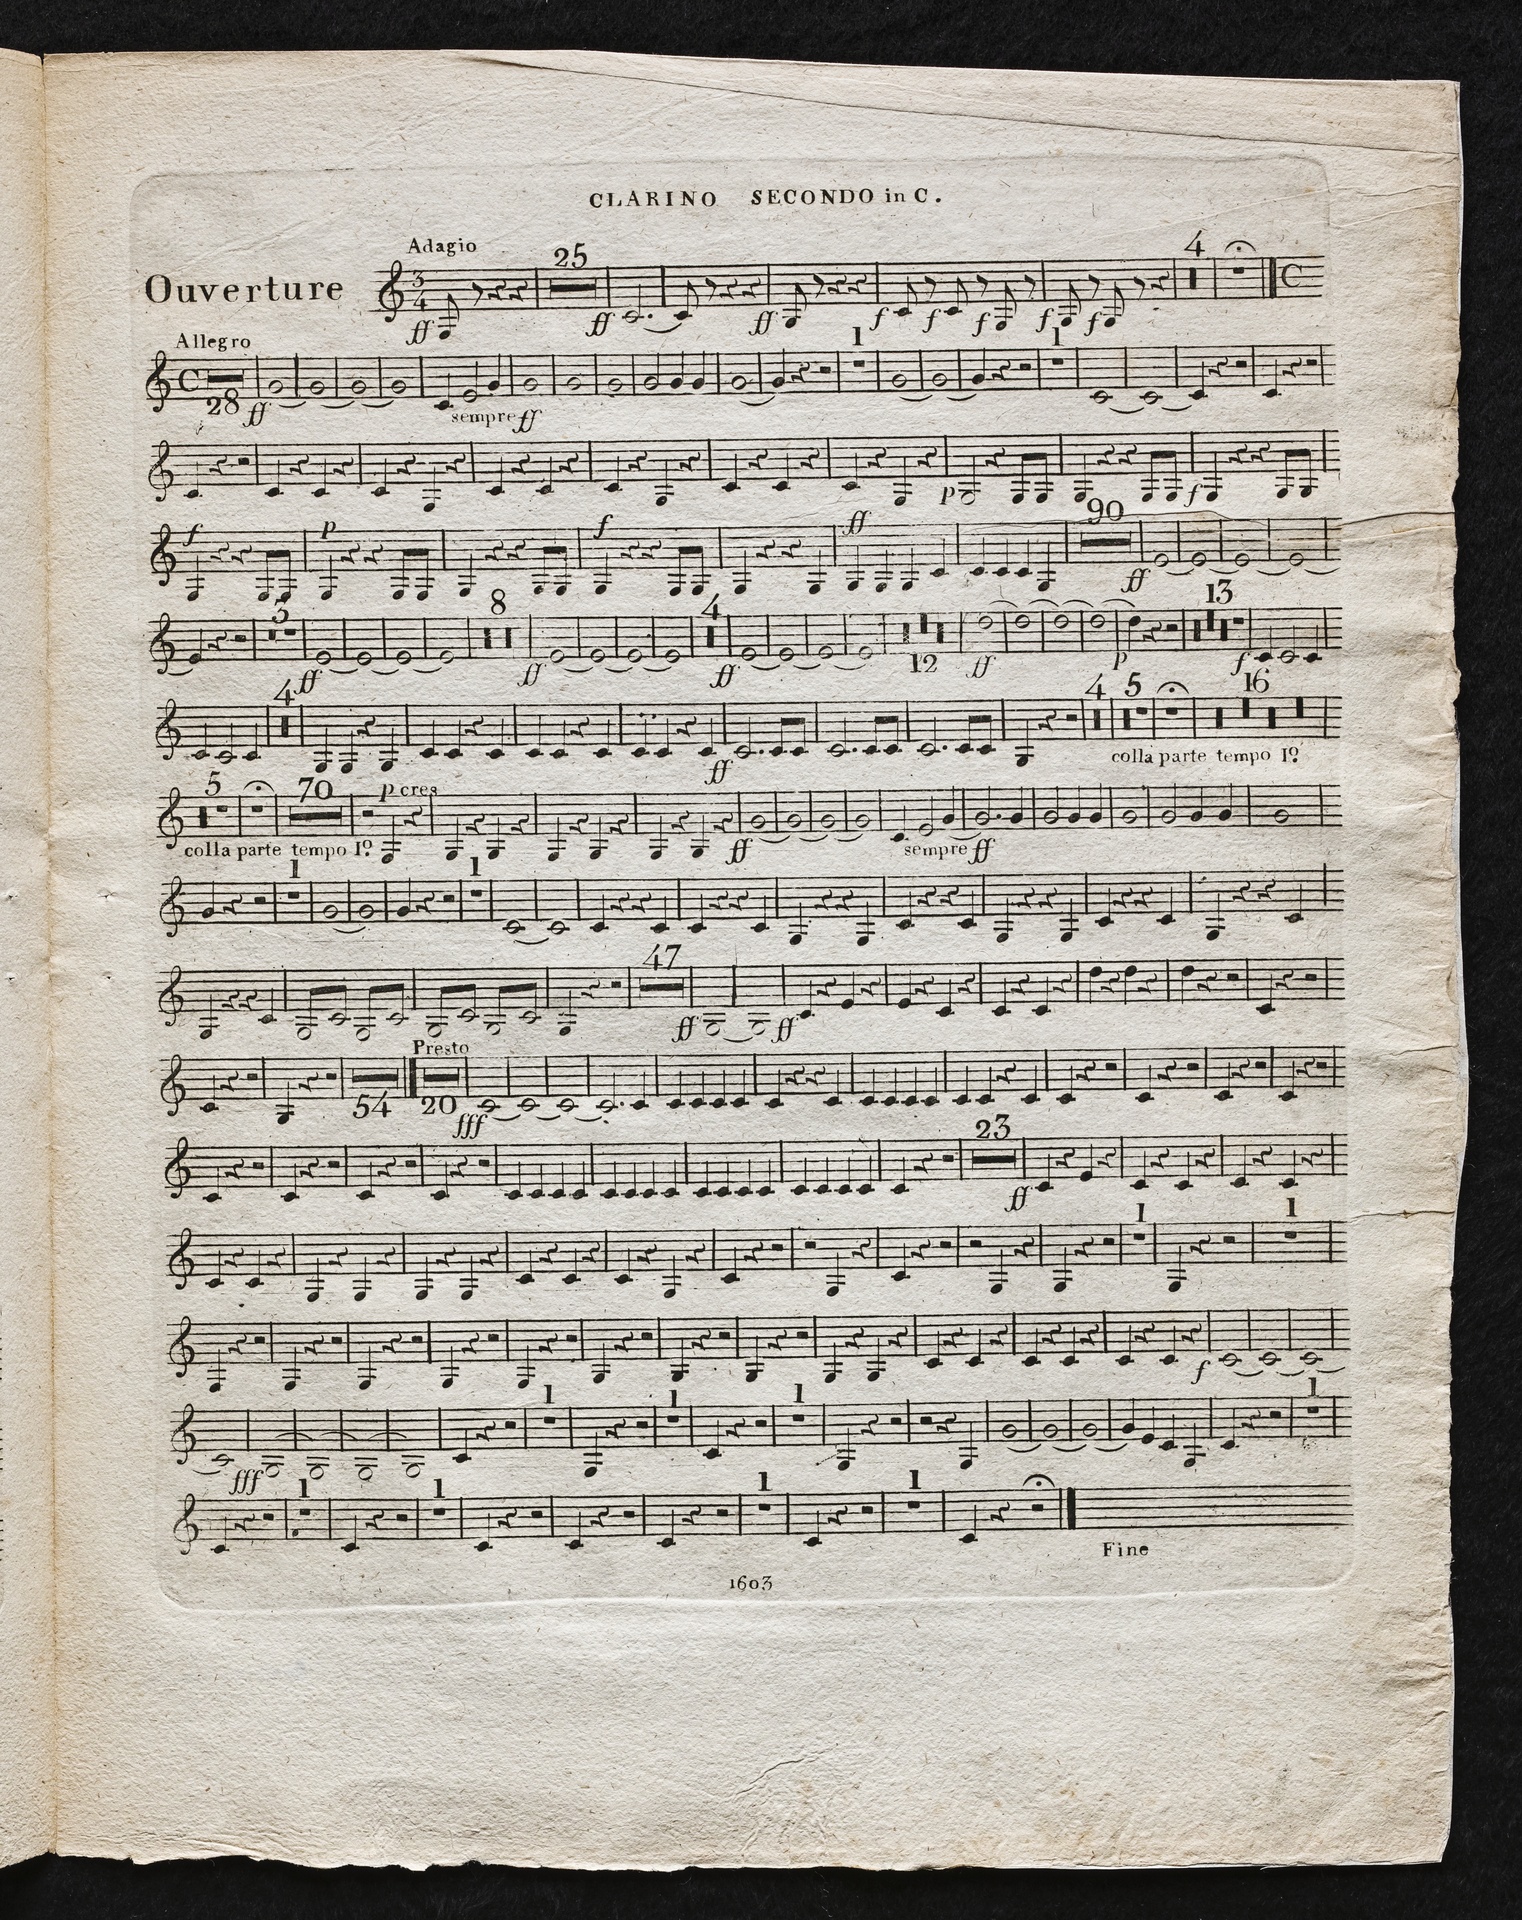 CLARINO SECONDO in C.
Adagio
25 4
Ouverture
3 4 C
ff ff ff f f f f f
Allegro
1 1
C
28 ff sempre ff
p f
f p f ff 90
ff
3 8 4 13
ff ff ff 12 ff p f
4 4 5 16
ff colla parte tempo Iº
5 70 p cres
colla parte tempo Iº ff sempre ff
1 1
47
ff ff
Presto
54 20 fff
23
ff
1 1
f
1 1 1 1
fff
1 1 1 1
Fine
1603